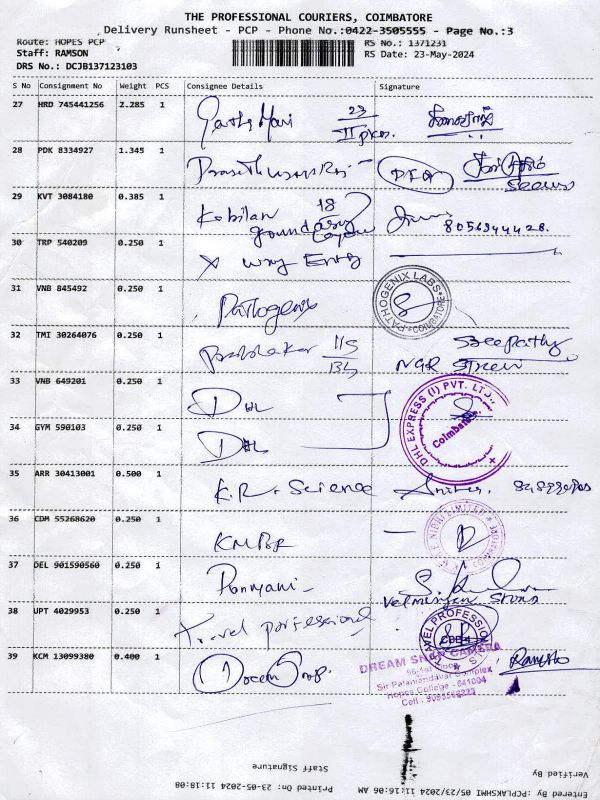 THE PROFESSIONAL COURIERS, COIMBATORE
Delivery Runsheet - PCP - Phone No.:0422-3505555 - Page No.:3
Route: HOPES PCP
RS No.: 1371231
Staff: RAMSON
RS Date: 23-May-2024
DRS No.: DCJB137123103
S No Consignment No Weight PCS Consignee Details Signature
27 HRD 745441256 2.285 1 23
II pkes.
28 PDK 8334927 1.345 1
29 KVT 3084180 0.385 1 Kabilan 18
8056344428.
30 TRP 540209 0.250 1 X Wrg Entry
31 VNB 845492 0.250 1 Pathogenix PATHOGENIX LABS COIMBATORE
32 TMI 30264076 0.250 1 Prabhakar 115
NGR Street
33 VNB 649201 0.250 1 DHL
DHL EXPRESS (I) PVT. LTD.,
Coimbatore
34 GYM 590103 0.250 1 DHL
35 ARR 30413001 0.500 1 K.R. Science
36 CDM 55268620 0.250 1
37 DEL 901590560 0.250 1 Ponnyani
Velmurugan Stores
38 UPT 4029953 0.250 1 Travel professional
39 KCM 13099380 0.400 1 Dream Snap. Ramesh
DREAM SNAP CAMERA
Sir Palaniandavar Complex
Hopes College - 641004
Verified By
Staff Signature
Entered By :PCPLAKSHMI 05/23/2024 11:16:06 AM
Printed On: 23-05-2024 11:18:08